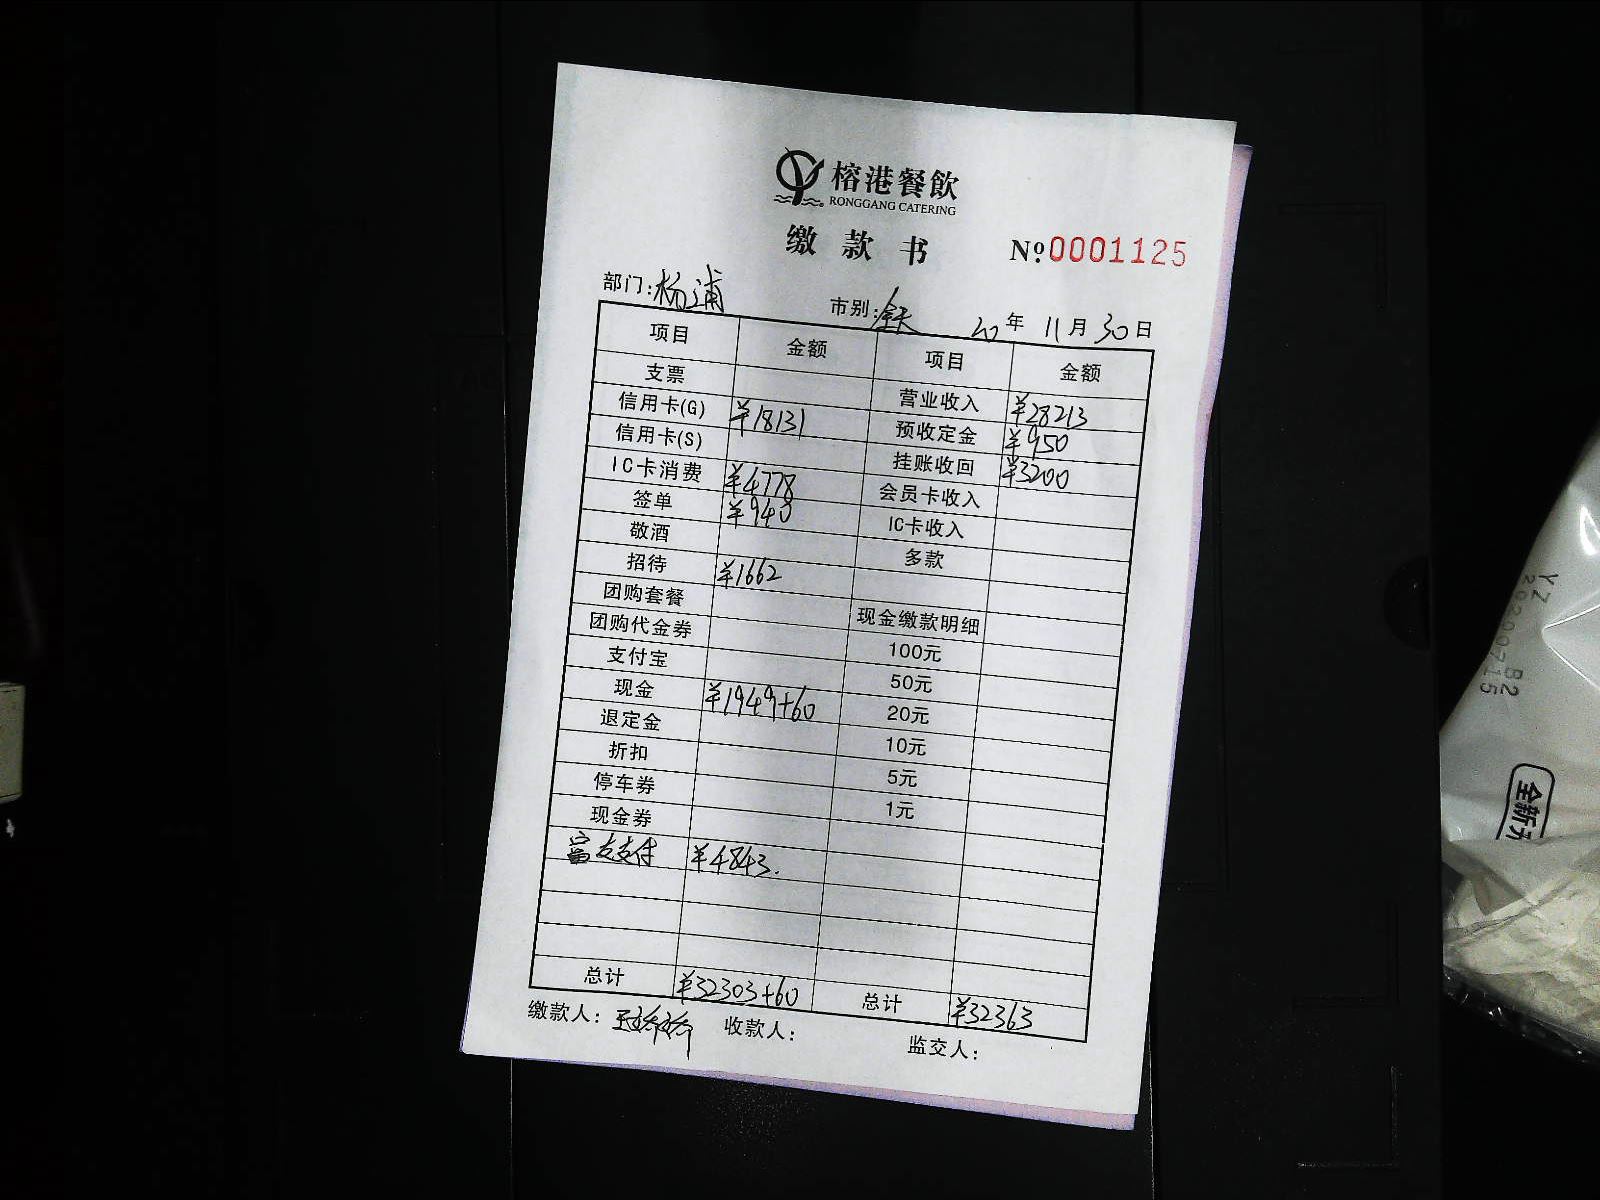 榕港餐飲
RONGGANG CATERING
缴款书 №0001125
部门:杨浦 市别:全天 20年11月30日
项目 金额 项目 金额
支票 营业收入 ¥28213
信用卡(G) ¥18131 预收定金 ¥950
信用卡(S) 挂账收回 ¥3200
IC卡消费 ¥4778 会员卡收入
签单 ¥940 IC卡收入
敬酒 多款
招待 ¥1662
团购套餐 现金缴款明细
团购代金券 100元
支付宝 50元
现金 ¥1949+60 20元
退定金 10元
折扣 5元
停车券 1元
现金券
富友支付 ¥4843.
总计 ¥32303+60 总计 ¥32363
缴款人: 收款人: 监交人:
YZ B2
20200715
全新升